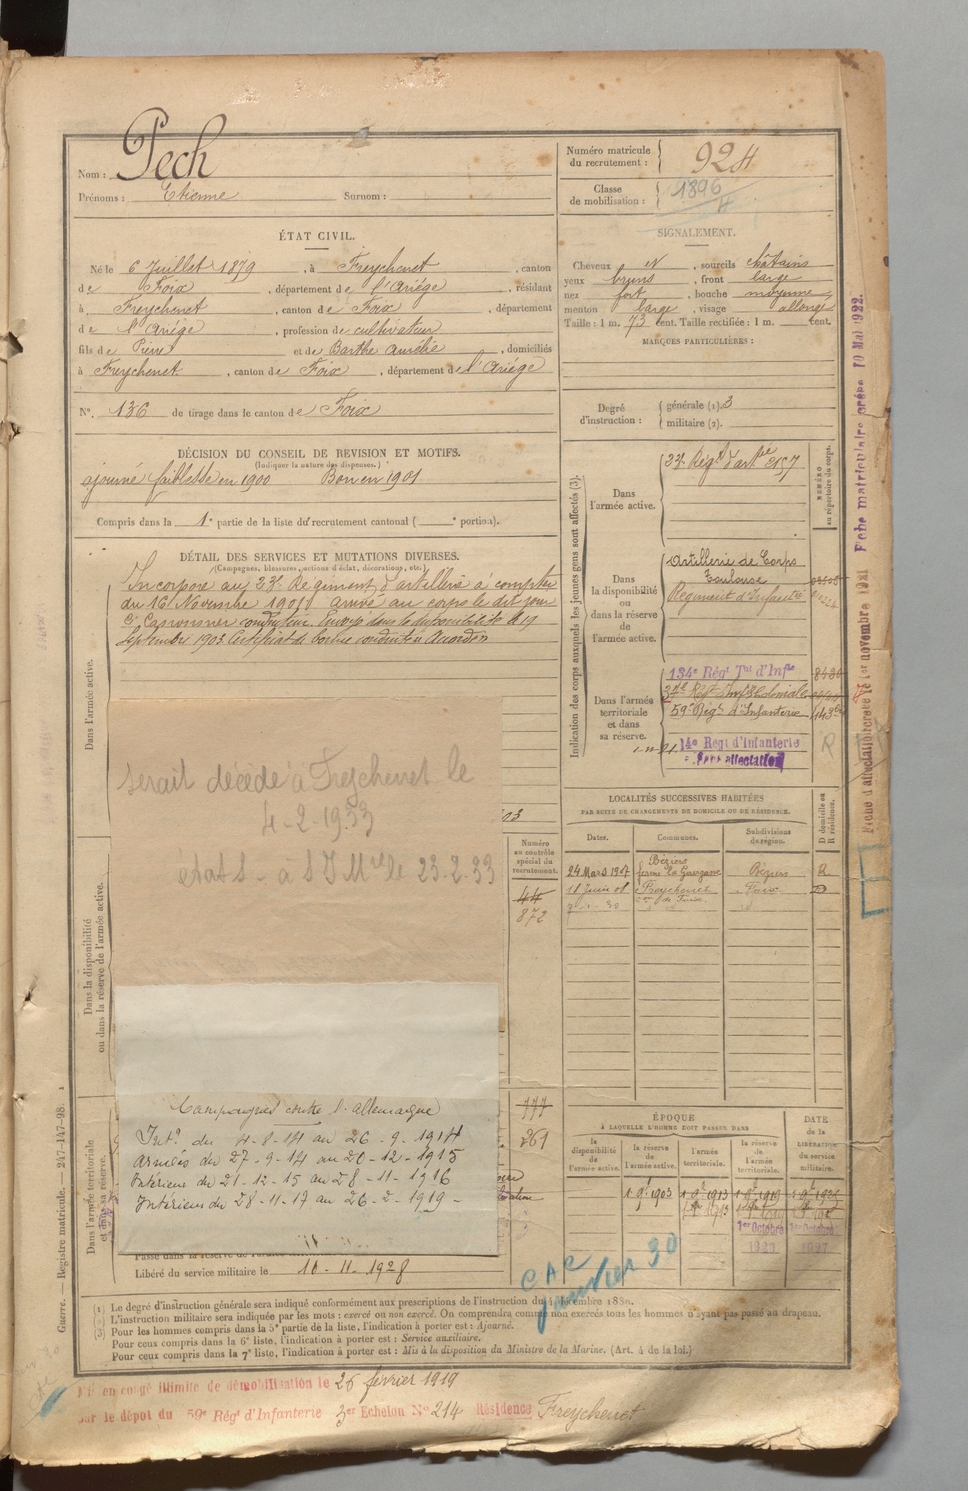 Nom : Pech
Prénoms : Etienne Surnom :
Numéro matricule du recrutement : 924
Classe de mobilisation : 1896
ÉTAT CIVIL.
Né le 6 Juillet 1879, à Freychenet, canton
de Foix, département de l'Ariége, résidant
à Freychenet, canton de Foix, département
de l'Ariége, profession de cultivateur
fils de Pierre et de Barthe Amélie, domiciliés
à Freychenet, canton de Foix, département de l'Ariége
N°. 136 de tirage dans le canton de Foix
SIGNALEMENT.
Cheveux N, sourcils châtains
yeux bruns, front large
nez fort, bouche moyenne
menton large, visage allongé
Taille : 1 m. 73 cent. Taille rectifiée : 1 m. cent.
MARQUES PARTICULIÈRES :
Degré d'instruction : générale (1). 3
militaire (2).
DÉCISION DU CONSEIL DE REVISION ET MOTIFS.
(Indiquer la nature des dispenses.)
ajourné faiblesse en 1900 Bon en 1901
Compris dans la 1e partie de la liste du recrutement cantonal ( e portion).
DÉTAIL DES SERVICES ET MUTATIONS DIVERSES.
(Campagnes, blessures, actions d'éclat, décorations, etc.)
Incorporé au 23e Régiment d'artillerie à compter
du 16 Novembre 1901 arrivé au corps le dit jour
conducteur. Envoyé dans la disponibilité le 19
Septembre 1903 Certificat de bonne conduite Accordé
Dans l'armée active.
serait décédé à Freychenet le
4-2-1933
23-2-33
Dans la disponibilité ou dans la réserve de l'armée active.
Numéro au contrôle spécial du recrutement.
44
872
777
261
Dans l'armée territoriale et dans sa réserve.
Campagnes contre l'Allemagne
Intr. du 4-8-14 au 26-9-1914
Armées du 27-9-14 au 20-12-1915
Intérieur du 21-12-15 au 28-11-1916
Intérieur du 28-11-17 au 26-2-1919 -
Libéré du service militaire le 10-11-1928
Indication des corps auxquels les jeunes gens sont affectés (3).
NUMÉRO au répertoire du corps.
Dans l'armée active.
23e Régt d'artie 2157
Dans la disponibilité ou dans la réserve de l'armée active.
Artillerie de Corps
Toulouse
Régiment d'Infanterie
Dans l'armée territoriale et dans sa réserve.
134e Régt Tal d'Infie
34e Régt Inf Coloniale
59e Régt d'Infanterie
14e Regt d'Infanterie
Sans affectation
R
LOCALITÉS SUCCESSIVES HABITÉES
PAR SUITE DE CHANGEMENTS DE DOMICILE OU DE RÉSIDENCE.
Dates. Communes. Subdivisions de région. D domicile ou R résidence.
24 Mars 1907 Béziers Béziers R
11 Juin 08 Freychenet Foix D
ÉPOQUE
À LAQUELLE L'HOMME DOIT PASSER DANS
la disponibilité de l'armée active. la réserve de l'armée active. l'armée territoriale. la réserve de l'armée territoriale.
DATE de la LIBÉRATION du service militaire.
1903 1913 1919
1er Octobre 1er Octobre
CAC
janvier 30
(1) Le degré d'instruction générale sera indiqué conformément aux prescriptions de l'instruction du 4 décembre 1889.
(2) L'instruction militaire sera indiquée par les mots : exercé ou non exercé. On comprendra comme non exercés tous les hommes n'ayant pas passé au drapeau.
(3) Pour les hommes compris dans la 5e partie de la liste, l'indication à porter est : Ajourné.
Pour ceux compris dans la 6e liste, l'indication à porter est : Service auxiliaire.
Pour ceux compris dans la 7e liste, l'indication à porter est : Mis à la disposition du Ministre de la Marine. (Art. 4 de la loi.)
Mis en congé illimité de démobilisation le 26 février 1919
par le dépôt du 59e Régt d'Infanterie 3er Echelon No 214 Résidence Freychenet
Guerre. — Registre matricule. — 247-147-98.
Fiche matriculaire créée 10 Mai 1922.